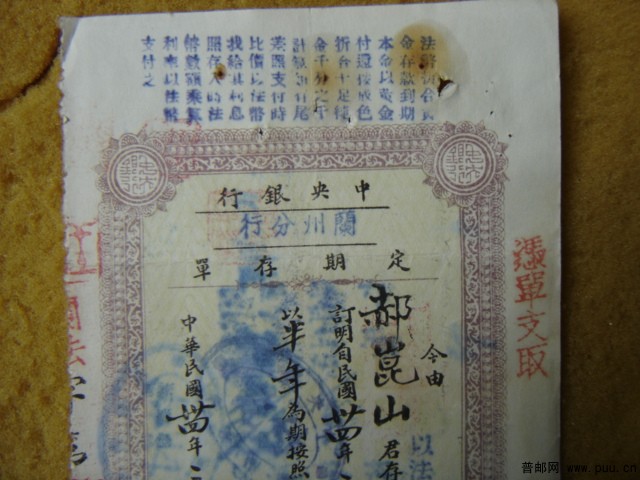 法幣折合黃
金存款到期
本金以黃金
付還按成色
折合十足純
金千分之千
計算如有尾
零照支付時
比價以法幣
找給其利息
照存入時法
幣數額乘算
利率以法幣
支付之
中央銀行
蘭州分行
定期存單
憑單支取
今由
郝崑山君存
以法
訂明自民國卅四年
以半年為期按照
中華民國卅四年
法字第
普邮网 www.puu.cn